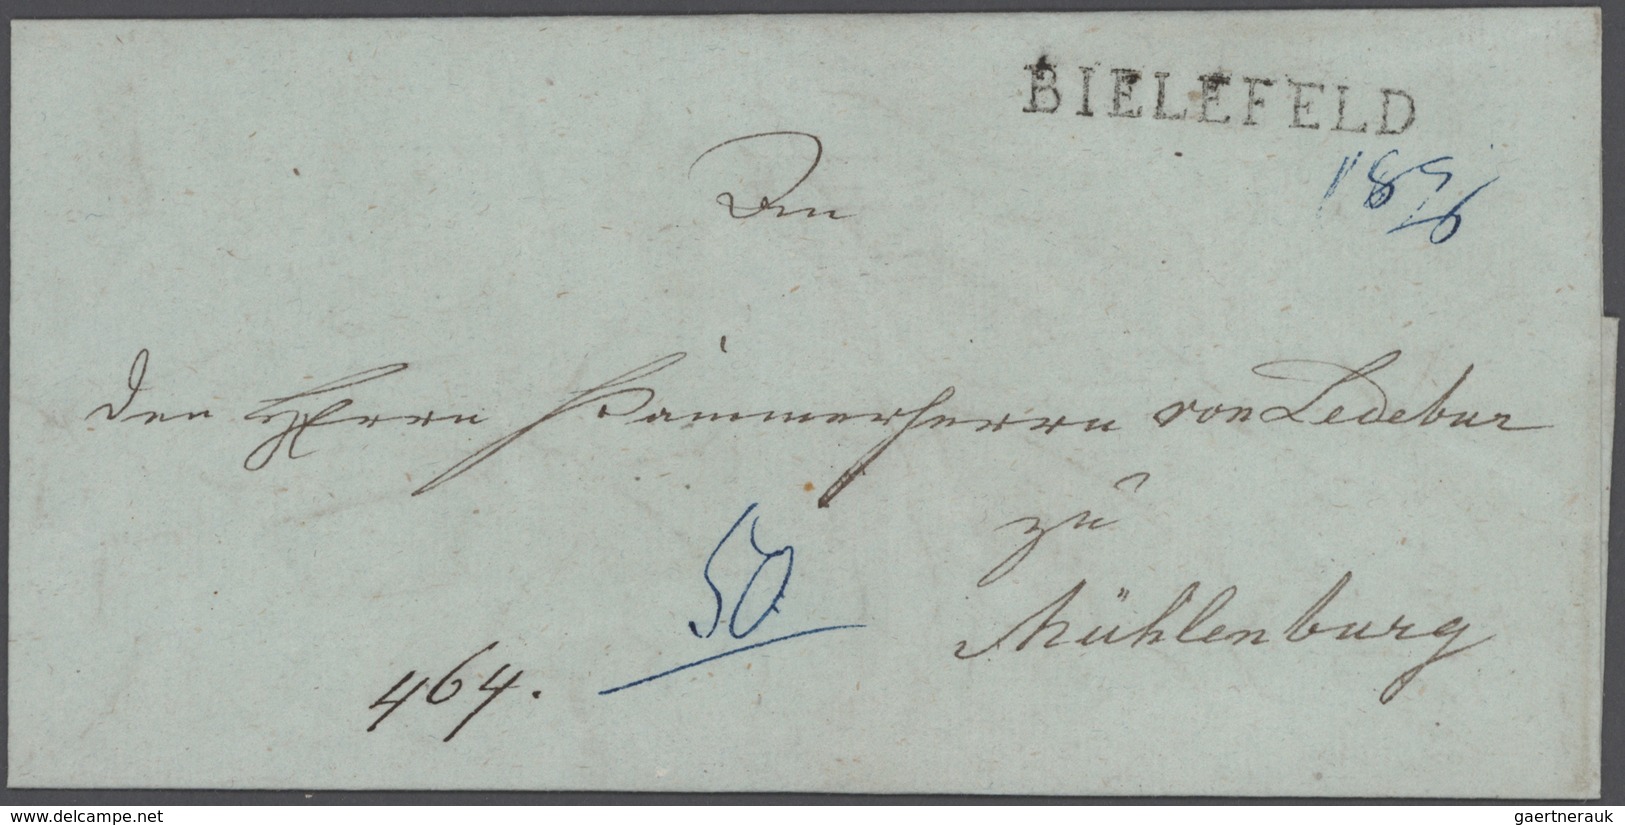 BIELEFELD
An
den Herrn Kammerherrn von Ledebur
zu
Mühlenburg
50
464.
delcampe.net
gaertnerauk